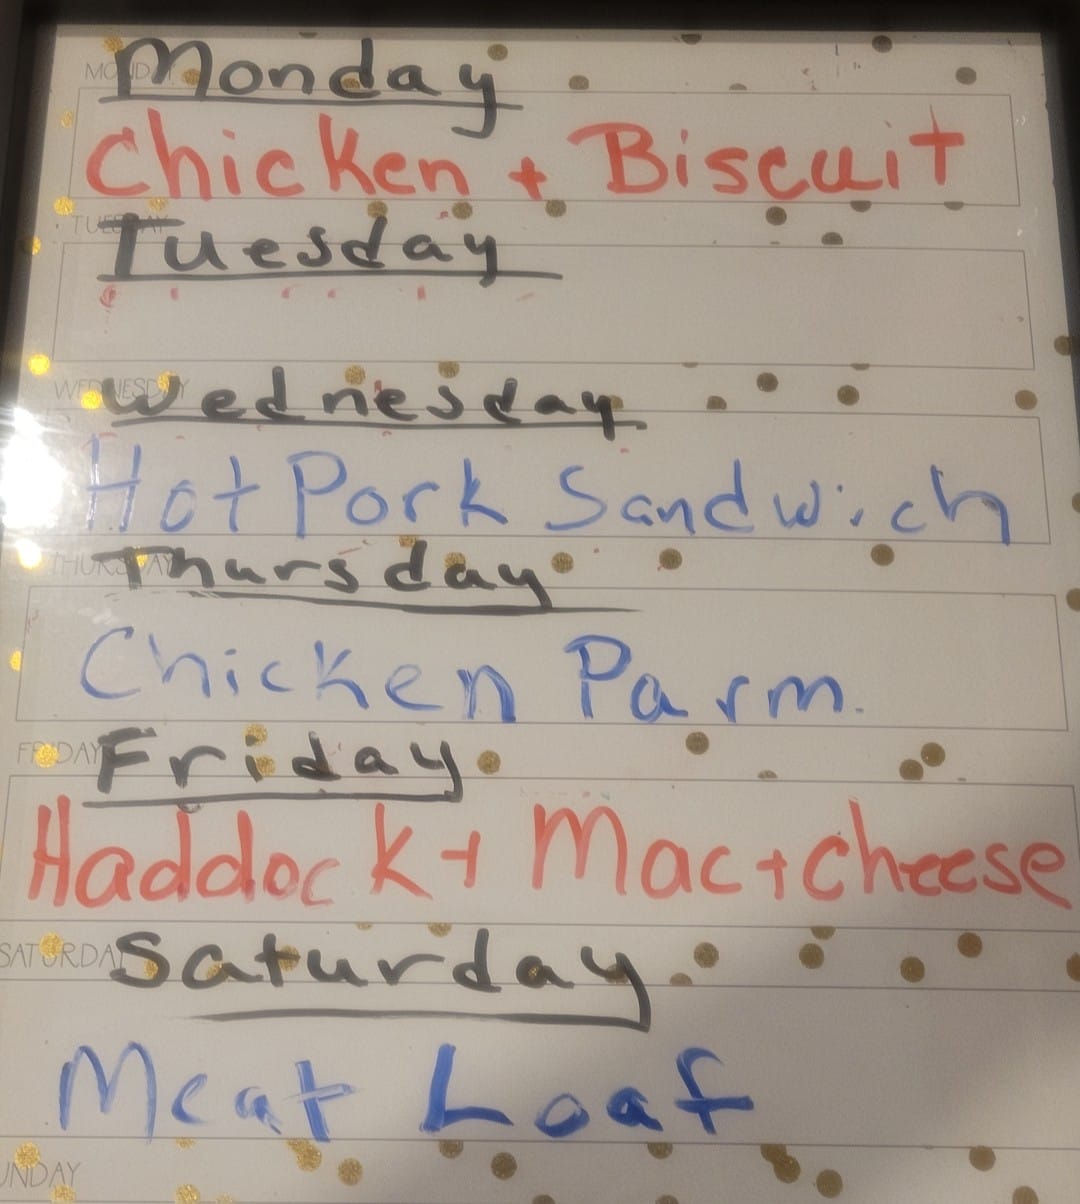 MONDAY
Monday
Chicken + Biscuit
TUESDAY
Tuesday
WEDNESDAY
Wednesday
Hot Pork Sandwich
THURSDAY
Thursday
Chicken Parm.
FRIDAY
Friday
Haddock + Mac + cheese
SATURDAY
Saturday
Meat Loaf
UNDAY